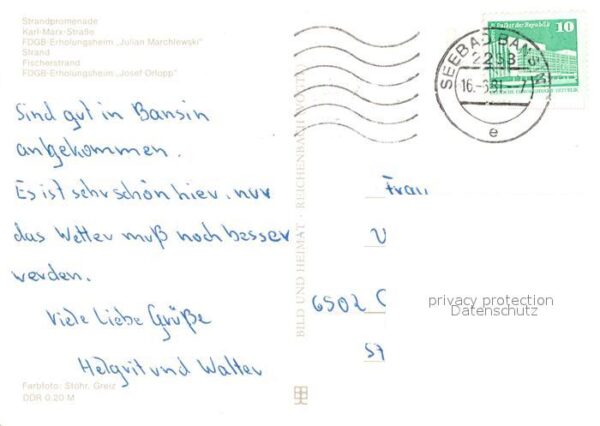 Strandpromenade
Karl-Marx-Straße
FDGB-Erholungsheim „Julian Marchlewski“
Strand
Fischerstrand
FDGB-Erholungsheim „Josef Orlopp“
Sind gut in Bansin
angekommen.
Es ist sehr schön hier, nur
das Wetter muß noch besser
werden.
Viele Liebe Grüße
Helgrit und Walter
Farbfoto: Stöhr, Greiz
DDR 0.20 M
BILD UND HEIMAT · REICHENBACH (VOGTL)
SEEBAD BANSIN
2253
16.-6.81.-7
e
Palast der Republik 10
Frau
V
6502 C
St
privacy protection
Datenschutz